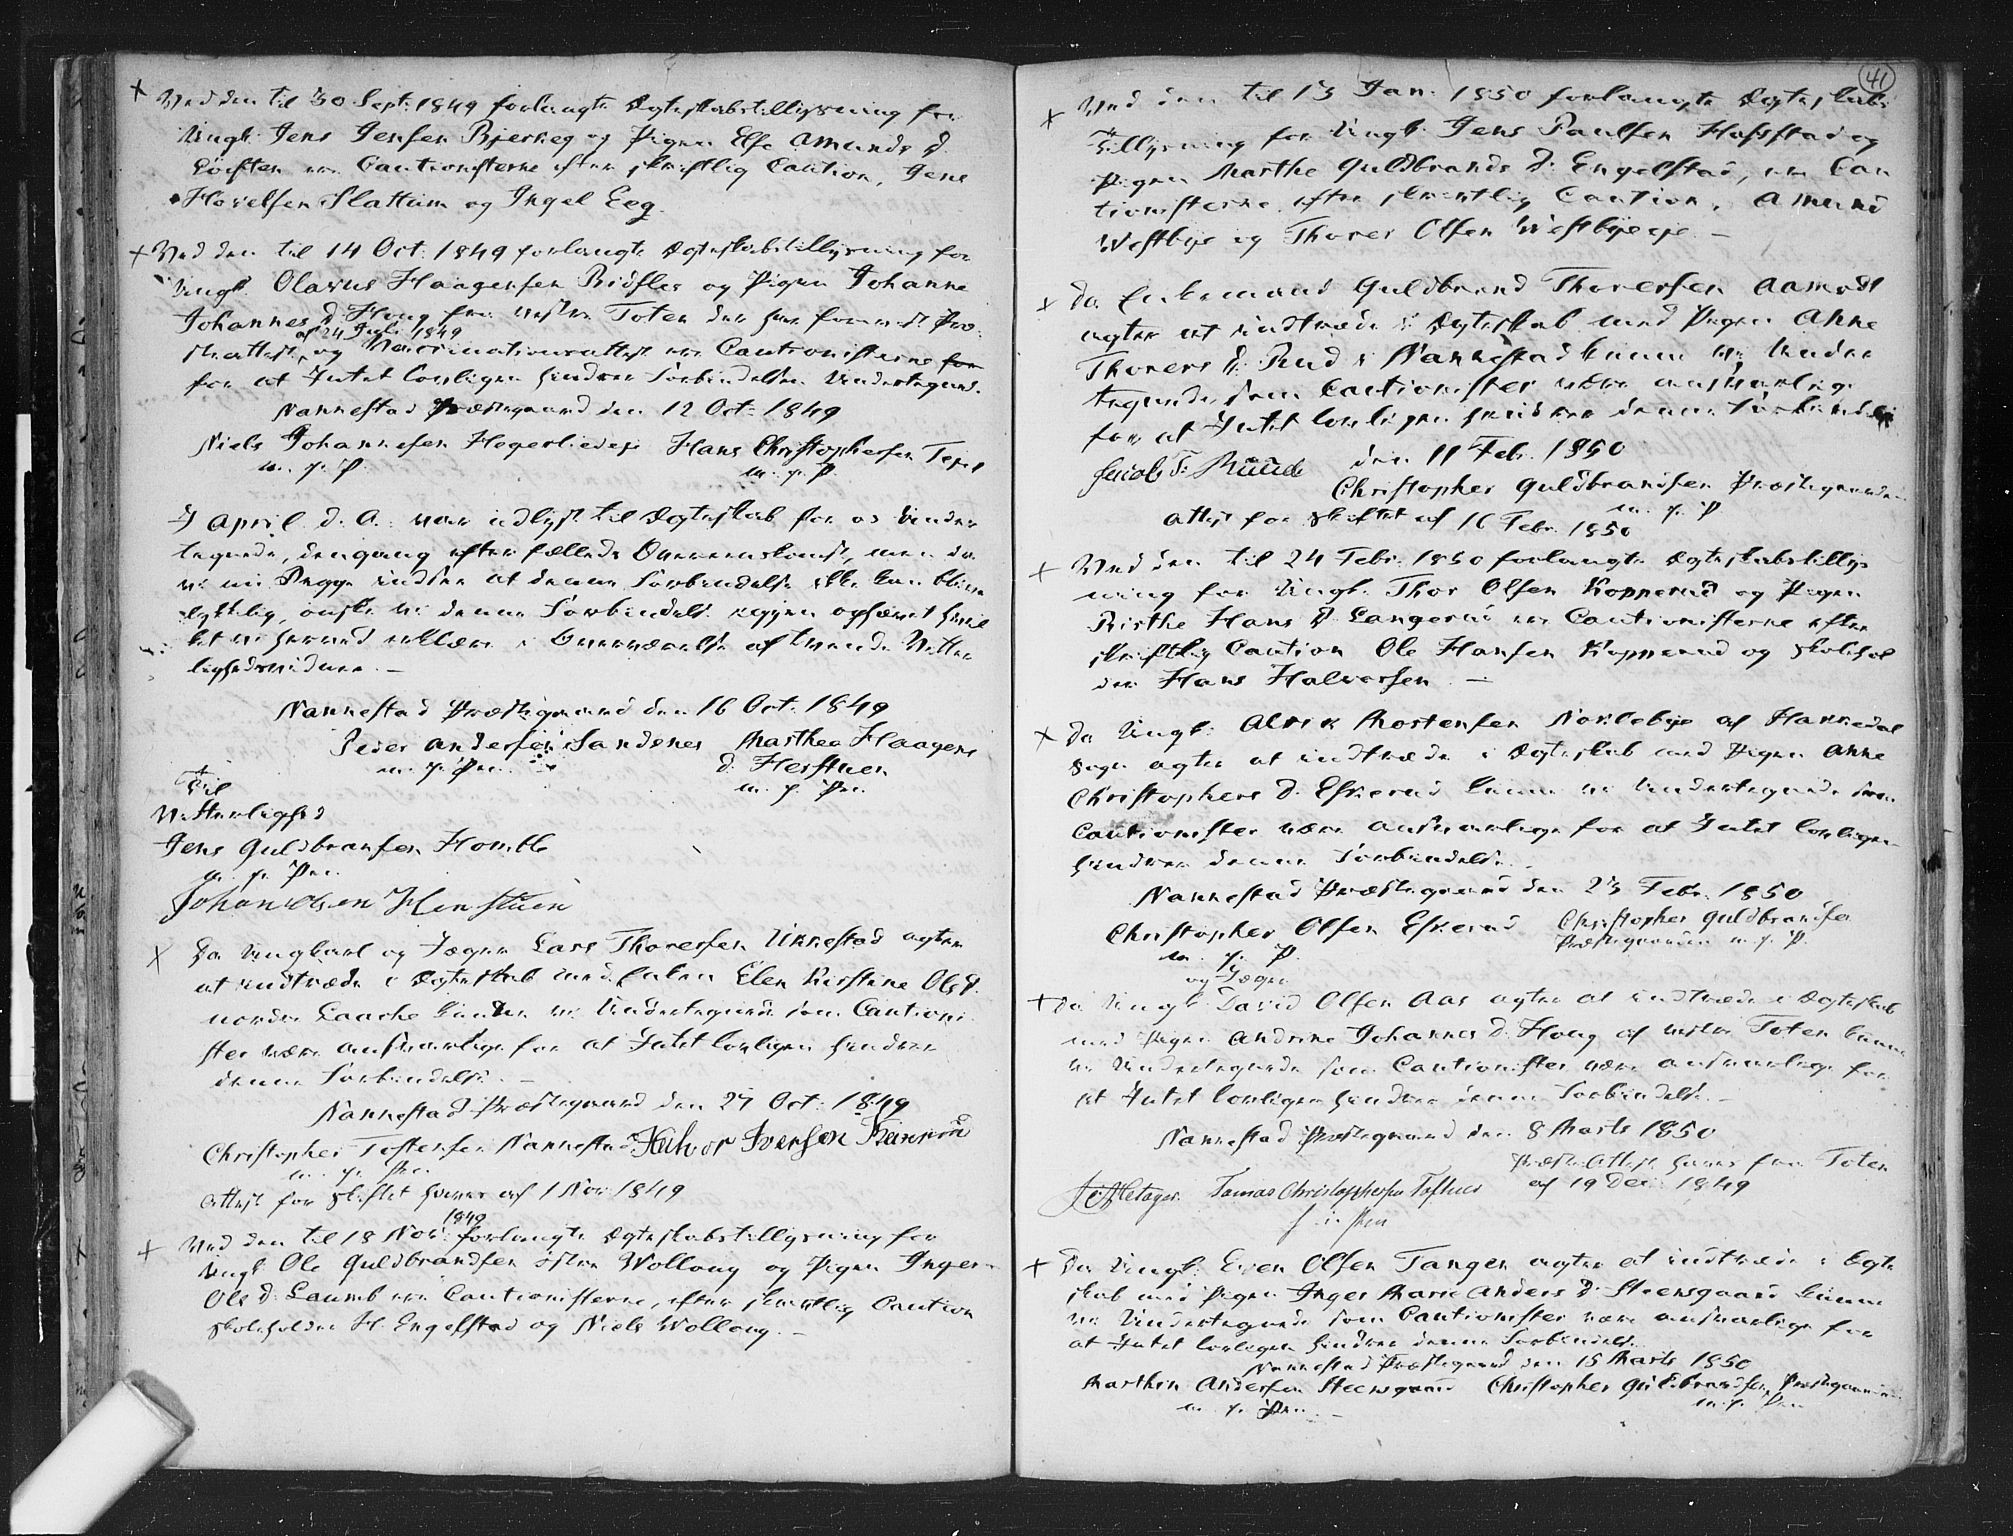 Ved den til 30 Sept. 1849 forlangte Egteskabstillysning for
Ungk. Jens Jensen Bjerkeg og Pigen Else Amunds d.
Løvsten ere Cautionisterne efter skriftlig Caution, Jens
Hovelsen Slattum og Ingel Eeg.
Ved den til 14 Oct. 1849 forlangte Egteskabstillysning for
Ungk. Olavus Haagensen og Pigen Johanne
Johannes d. Houg fra vestre Toten der har foreviist Præ-
af 24 Juli 1849
steattest og Vaccinationsattest ere Cautionisterne for
for at Intet lovligen hindrer Forbindelsen Undertegnede.
Nannestad Præstegaard den 12 Oct. 1849
Niels Johannesen Hogerlieeje Hans Christophersen
m. f. P. m. f. P.
I April d. A. var udlyst til Egteskab for os Under-
tegnede, dengang efter fælleds Overeenskomst, men da
vi nu Begge indsee at denne Forbindelse ikke kan blive
lykkelig, ønske vi denne Forbindelse igjen ophævet hvil-
ket vi herved erklære i Overværelse af tvende Vitter-
lighedsvidner. —
Nannestad Præstegaard den 16 Oct. 1849
Peder Andersen Sandsnes Marthea Haagens
m. f. Pen. d. Herstuen
m. f. Pen.
Til
Vitterlighed
Jens Guldbransen Homble
m. f. Pen.
Johan Olsen Herstuen
Da Ungkarl og Jæger Lars Thoresen Ukkestad agter
at indtræde i Egteskab med Enken Elen Kirstine Ols d.
nordre Laache kunne vi Undertegnede som Cautioni-
ster være ansvarlige for at Intet lovligen hindrer
denne Forbindelse. —
Nannestad Præstegaard den 27 Oct. 1849
Christopher Tostensen Nannestad Halvor Iversen
m. f. Pen.
Attest for Skiftet haves af 1 Nov. 1849
1849
Ved den til 18 Nov. forlangte Egteskabstillysning for
Ungk. Ole Guldbrandsen østre Wollaug og Pigen Inger
Ols d. Laumb ere Cautionisterne, efter skriftlig Caution
Skoleholder H. Engelstad og Niels Wollaug. —
41
Ved den til 13 Jan. 1850 forlangte Egteskabs-
tillysning for Ungk. Jens Paulsen Hofsstad og
Pigen Marthe Guldbrands d. Engelstad, ere Cau-
tionisterne efter skriftlig Caution, Amund
Westbye og Thorer Olsen Westbyeeje. —
Da Enkemand Guldbrand Thoresen Aamodt
agter at indtræde i Egteskab med Pigen Anne
Thorers d. Rud i Nannestad kunne vi Under-
tegnede som Cautionister være ansvarlige
for at Intet lovligen hindrer denne Forbindelse
den 11 Feb. 1850
Jacob T. Ruud
Christopher Guldbrandsen Præstegaarden
m. f. P
Attest for Skiftet af 16 Febr. 1850
Ved den til 24 Febr. 1850 forlangte Egteskabstillys-
ning for Ungk. Thor Olsen Kopperud og Pigen
Birthe Hans d. Langerud ere Cautionisterne efter
skriftlig Caution Ole Hansen Kopperud og Skolehol-
der Hans Halvorsen. —
Da Ungk. Alrik Mortensen Nordebye af Hakkedal
Sogn agter at indtræde i Egteskab med Pigen Anne
Christophers d. Eskerud kunne vi Undertegnede som
Cautionister være ansvarlige for at Intet lovligen
hindrer denne Forbindelse.
Nannestad Præstegaard den 23 Febr. 1850
Christopher Olsen Eskerud Christopher Guldbrandsen
m. f. P. Præstegaarden m. f. P.
og Jæger
Da Ungk. David Olsen Aas agter at indtræde i Egteskab
med Pigen Andrine Johannes d. Houg af vestre Toten kunne
vi Undertegnede som Cautionister være ansvarlige for
at Intet lovligen hindrer denne Forbindelse. —
Nannestad Præstegaard den 8 Marts 1850
Præsteattest haves fra Toten
af 19 Dec. 1849
Tomas Christophersen Toftner
Da Ungk. Even Olsen Tangen agter at indtræde i Egte-
skab med Pigen Inger Marie Anders d. Steensgaard kunne
vi Undertegnede som Cautionister være ansvarlige for
at Intet lovligen hindrer denne Forbindelse.
Nannestad Præstegaard den 15 Marts 1850
Marthin Andersen Steensgaard Christopher Guldbrandsen Præstegaarden
m. f. Pen. — m. f. Pen